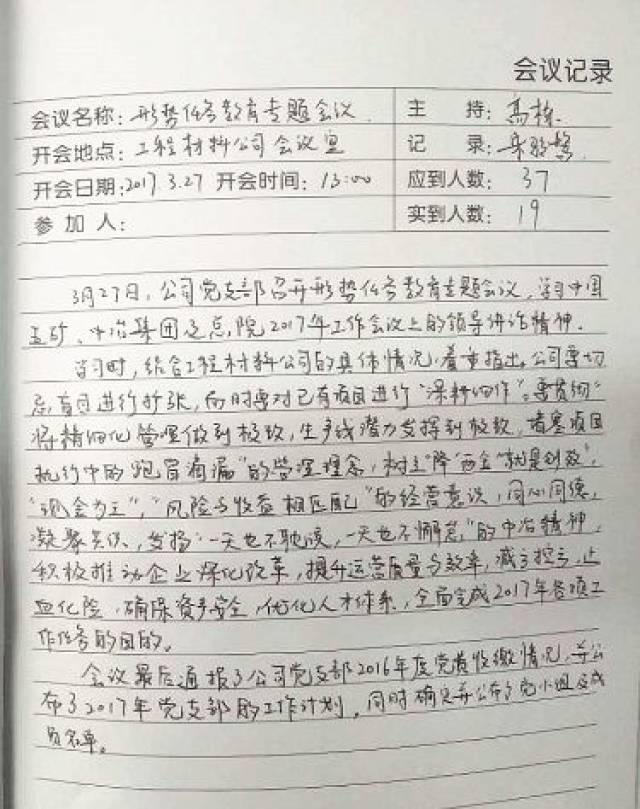 会议记录
会议名称：形势任务教育专题会议 主 持：高栋
开会地点：工程材料公司会议室 记 录：
开会日期：2017 3.27 开会时间：13:00 应到人数：37
参 加 人： 实到人数：19
3月27日，公司党支部召开形势任务教育专题会议，学习中国
五矿、中冶集团及总院2017年工作会议上的领导讲话精神。
学习时，结合工程材料公司的具体情况，着重指出，公司要切
忌盲目进行扩张，同时要对已有项目进行"深耕细作"。要贯彻"
将精细化管理做到极致，生产线潜力发挥到极致，堵塞项目
执行中的跑冒滴漏"的管理理念，树立"降'两金'就是创效"，
"现金为王"，"风险与收益相匹配"的经营意识，同心同德，
凝聚共识，发扬"一天也不耽误，一天也不懈怠"的中冶精神，
积极推动企业深化改革，提升运营质量与效率，减亏控亏，止
血化险，确保资产安全，优化人才体系，全面完成2017年各项工
作任务的目的。
会议最后通报了公司党支部2016年度党费收缴情况，并公
布了2017年党支部的工作计划，同时确定并公布了党小组及成
员名单。